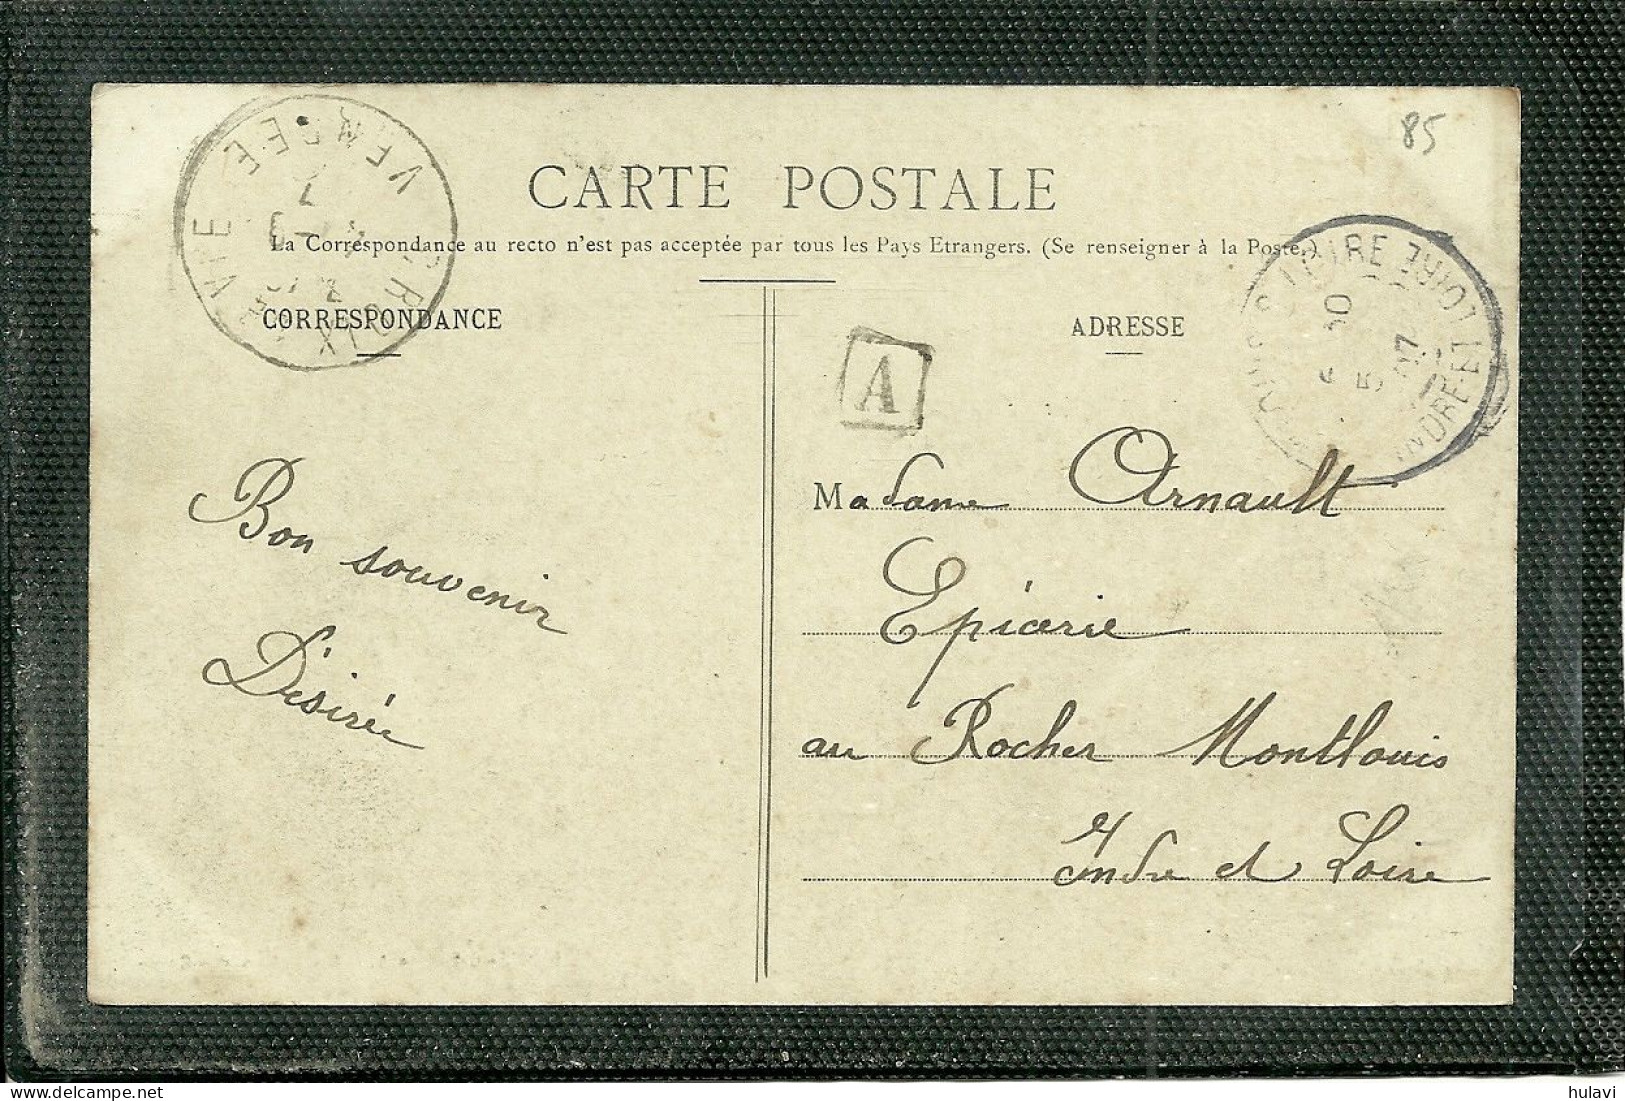 85
CARTE POSTALE
La Correspondance au recto n'est pas acceptée par tous les Pays Etrangers. (Se renseigner à la Poste.)
CORRESPONDANCE
ADRESSE
A
VENDEE
CROIX DE VIE
LOIRE
INDRE-ET-LOIRE
Bon souvenir
Désirée
Madame Arnault
Epicerie
au Rocher Montlouis
Indre et Loire
hulavi